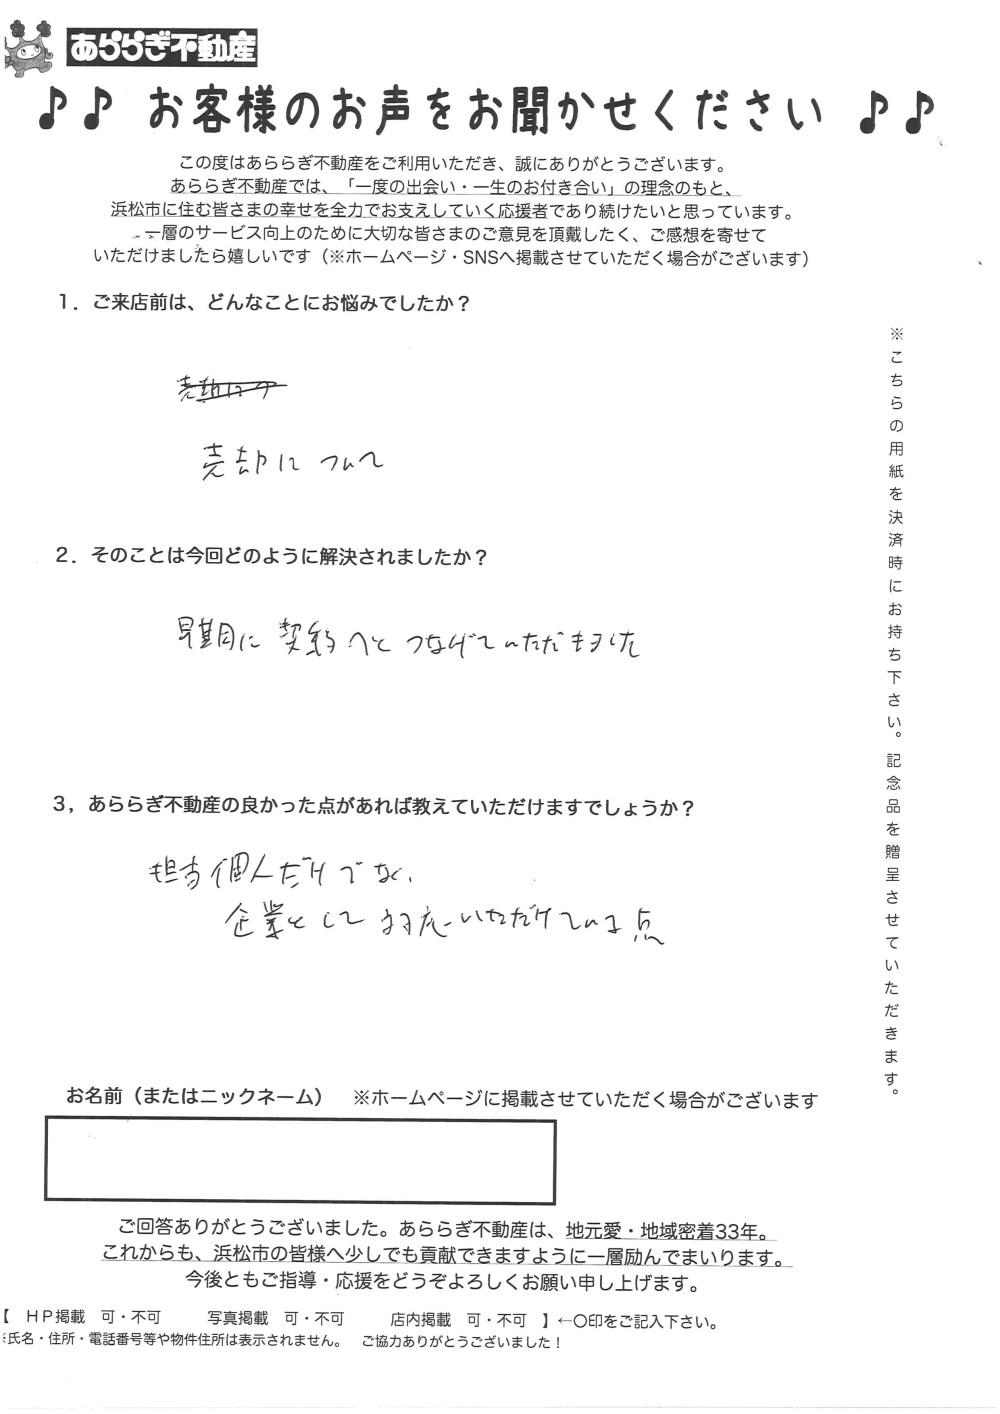 あららぎ不動産
♪♪ お客様のお声をお聞かせください ♪♪
この度はあららぎ不動産をご利用いただき、誠にありがとうございます。
あららぎ不動産では、「一度の出会い・一生のお付き合い」の理念のもと、
浜松市に住む皆さまの幸せを全力でお支えしていく応援者であり続けたいと思っています。
一層のサービス向上のために大切な皆さまのご意見を頂戴したく、ご感想を寄せて
いただけましたら嬉しいです（※ホームページ・SNSへ掲載させていただく場合がございます）
1．ご来店前は、どんなことにお悩みでしたか？
売却について
2．そのことは今回どのように解決されましたか？
早期に契約へとつなげていただきました
3，あららぎ不動産の良かった点があれば教えていただけますでしょうか？
担当個人だけでなく、
企業として対応いただけている点
※こちらの用紙を決済時にお持ち下さい。記念品を贈呈させていただきます。
お名前（またはニックネーム）　※ホームページに掲載させていただく場合がございます
ご回答ありがとうございました。あららぎ不動産は、地元愛・地域密着33年。
これからも、浜松市の皆様へ少しでも貢献できますように一層励んでまいります。
今後ともご指導・応援をどうぞよろしくお願い申し上げます。
【　HP掲載　可・不可　　写真掲載　可・不可　　店内掲載　可・不可　】←○印をご記入下さい。
氏名・住所・電話番号等や物件住所は表示されません。　ご協力ありがとうございました！